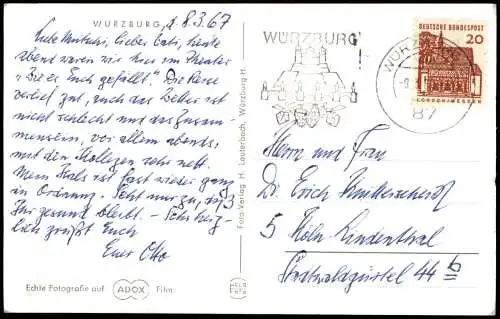 WÜRZBURG, d. 8.3.67
Liebe Mutti, lieber Vati, heute
abend waren wir hier im Theater
"Wie es Euch gefällt". Die Reise
verlief gut, auch das Wetter ist
nicht schlecht und das Zusam-
mensein, vor allem abends,
mit den Kollegen sehr nett.
Mein Hals ist fast wieder ganz
in Ordnung. Seht nur zu, daß
Ihr gesund bleibt. – Sehr herz-
lich grüßt Euch
Euer Otto
Echte Fotografie auf ADOX Film
Foto-Verlag H. Lauterbach, Würzburg-H.
WÜRZBURG
DEUTSCHE BUNDESPOST
20
LORSCH/HESSEN
87
Herrn und Frau
Dr. Erich
5 Köln Lindenthal
Stadtwaldgürtel 44 b